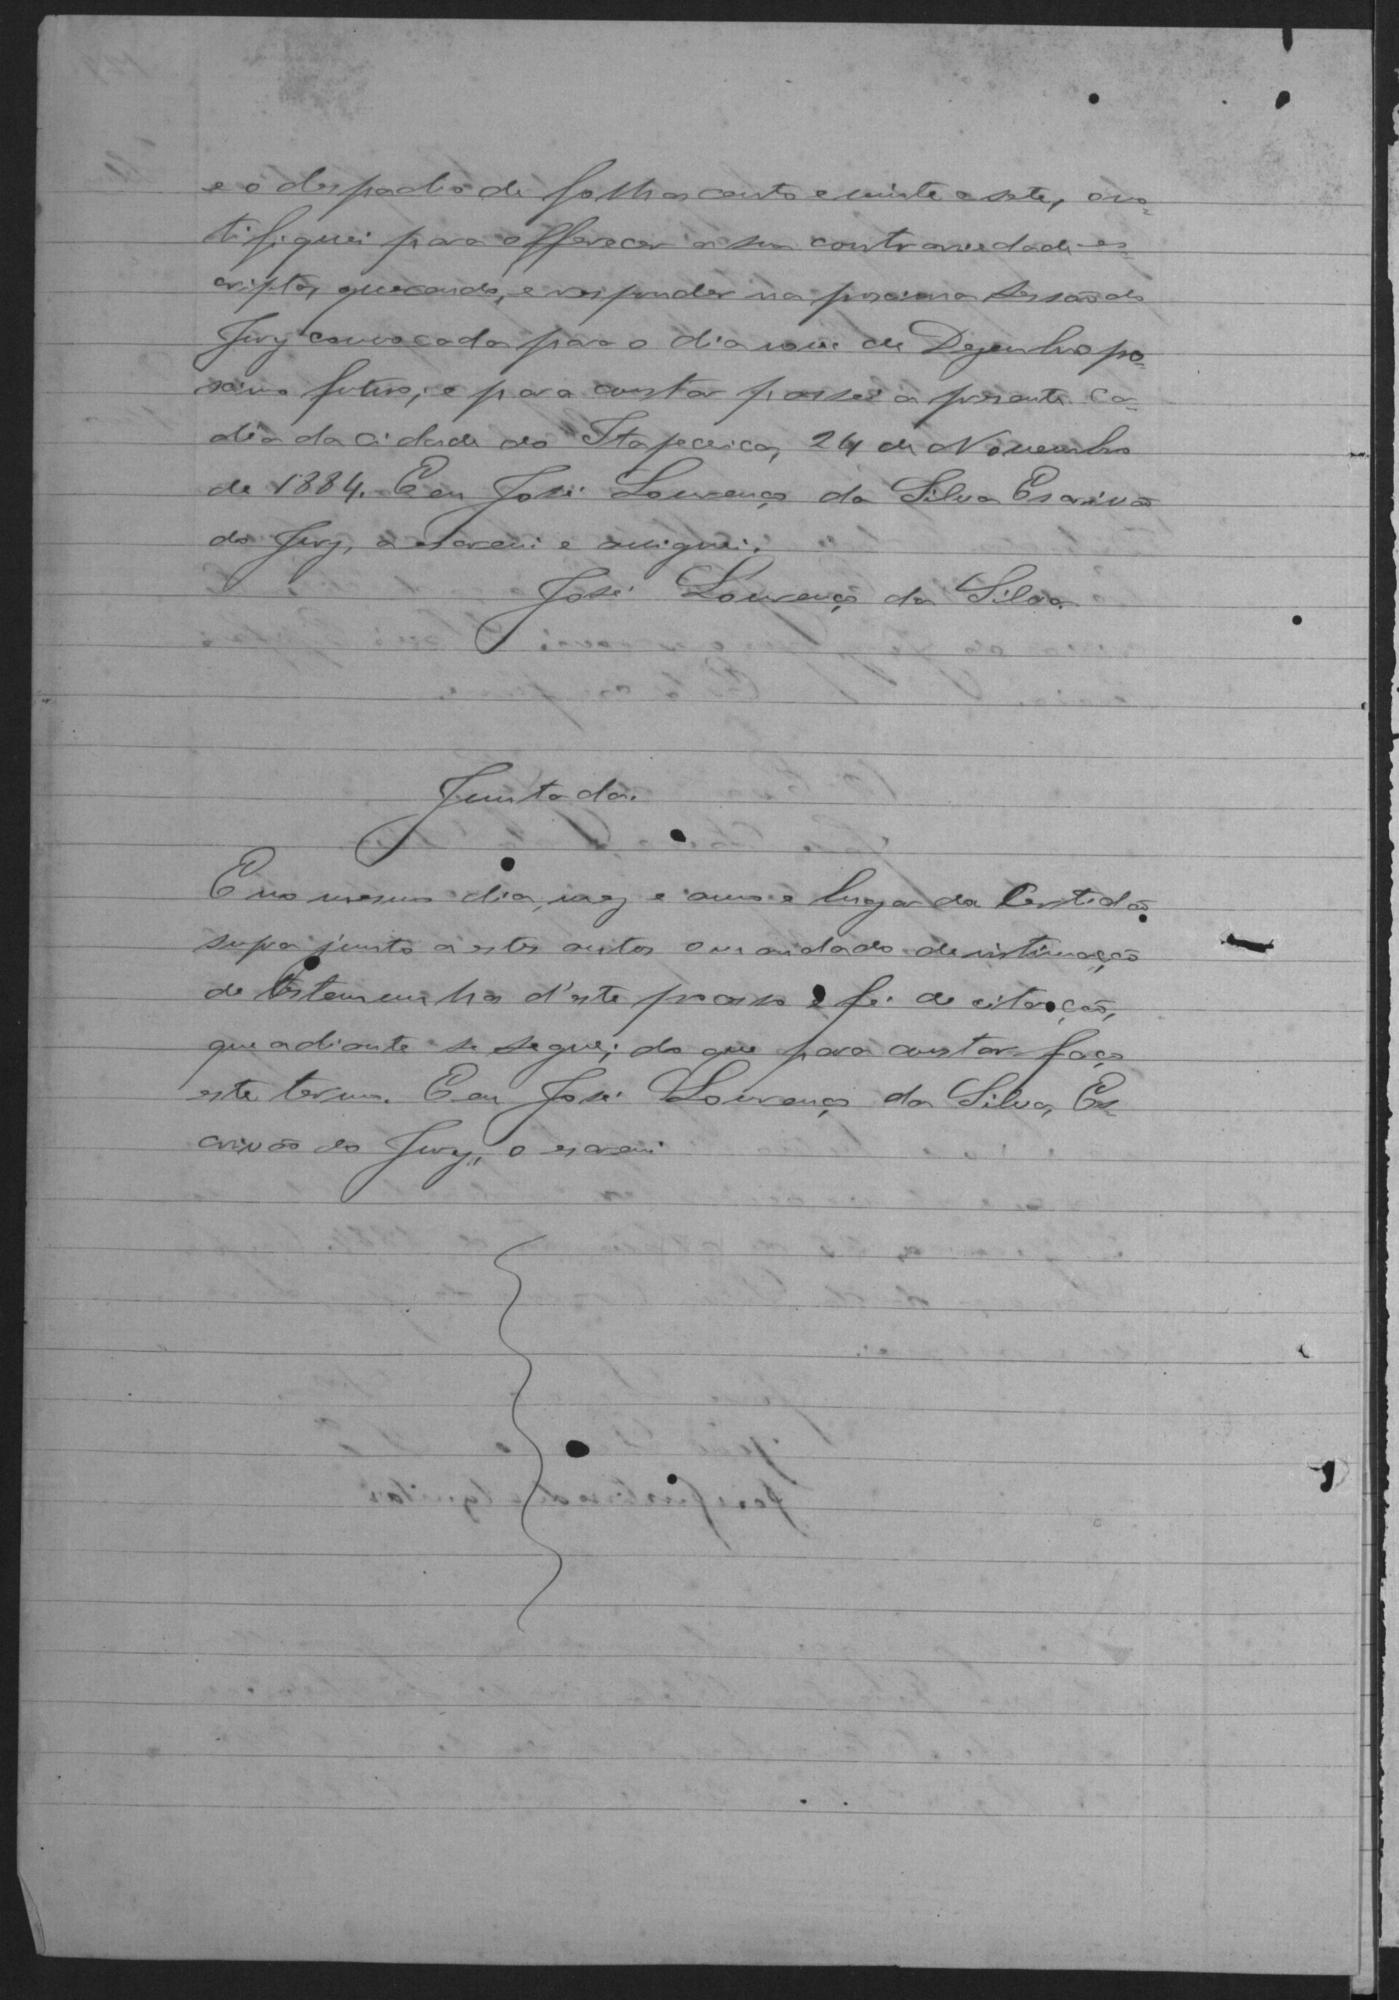 e o despacho de folhas cento e vinte e sete, o no-
tifiquei para offerecer a sua contrariedade es-
cripta, querendo, e responder na proxima sessão do
Jury convocada para o dia nove de Dezembro pro-
ximo futuro; e para constar passei a presente. Ca-
dêa da cidade do Itapecerica, 24 de Novembro
de 1884. E eu José Lourenço da Silva Escrivão
do Jury, a escrevi e assignei.
José Lourenço da Silva
Juntada.
E no mesmo dia, mez e anno e lugar da Certidão
supra junto a estes autos o mandado de intimação
de testemunhas d'este processo e fé de citação,
que adiante se segue; do que para constar faço
este termo. E eu José Lourenço da Silva, Es-
crivão do Jury, o escrevi